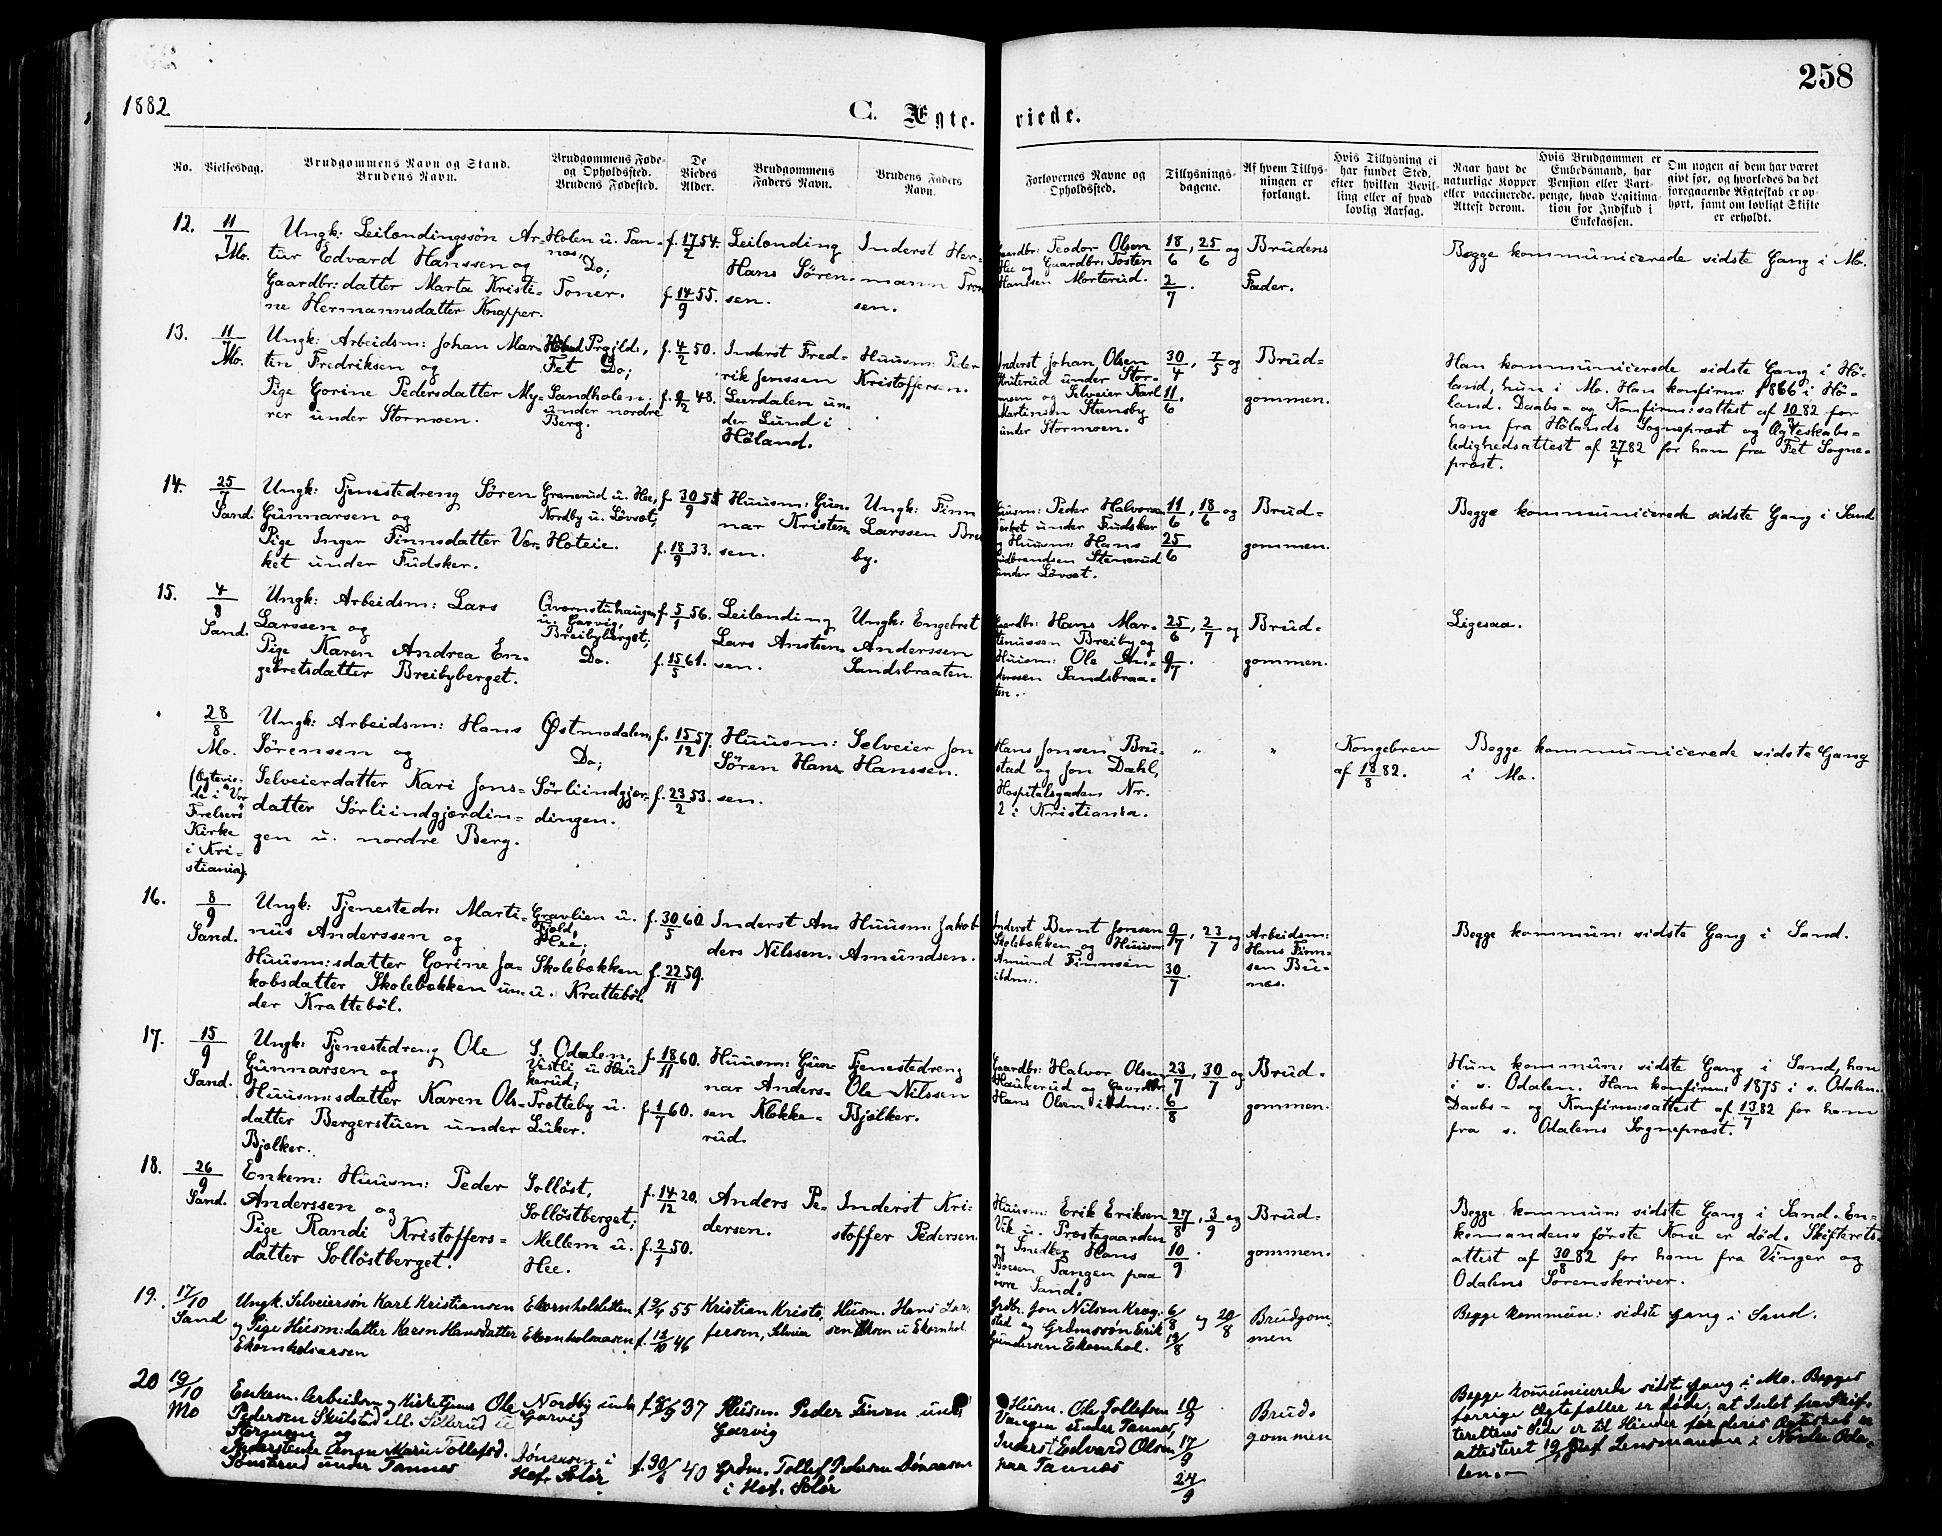 258
1882
C. Ægte-
viede.
No.
Vielsesdag.
Brudgommens Navn og Stand.
Brudens Navn.
Brudgommens Føde-
og Opholdssted.
Brudens Fødested.
De
Viedes
Alder.
Brudgommens
Faders Navn.
Brudens Faders
Navn.
Forlovernes Navne og
Opholdssted.
Tillysnings-
dagene.
Af hvem Tillys-
ningen er
forlangt.
Hvis Tillysning ei
har fundet Sted,
efter hvilken Bevil-
ling eller af hvad
lovlig Aarsag.
Naar havt de
naturlige Kopper
eller vaccinerede.
Attest derom.
Hvis Brudgommen er
Embedsmand, har
Pension eller Vart-
penge, hvad Legitima-
tion for Indskud i
Enkekassen.
Om nogen af dem har været
gift før, og hvorledes da det
foregaaende Ægteskab er op-
hørt, samt om lovligt Skifte
er erholdt.
12.
11/7
Mo.
Ungk: Leilændingssøn Ar-
tur Edvard Hanssen og
Gaardbr: datter Marta Kristi-
ne Hermannsdatter Knapper.
Holen u. Tan-
næs,
Do;
Toner.
f. 17/2 54.
f. 14/9 55.
Leilending
Hans Søren-
sen.
Inderst Her-
mann Tron
sen.
Gaardbr: Teodor Olsen
Hee og Gaardbr: Tosten
Hansen Morterud.
18/6, 25/6 og
2/7.
Brudens
Fader.
Begge kommunicerede sidste Gang i Mo.
13.
11/7
Mo.
Ungk: Arbeidsm: Johan Mar-
tin Fredriksen og
Pige Gorine Pedersdatter My-
rer under Stormoen.
Fet Do;
Sandholen
under nordre
Berg.
f. 4/2 50.
f. 9/2 48.
Inderst Fred-
rik Jenssen
Lierdalen un-
der Lund i
Höland.
Huusm: Peder
Kristoffersen.
Inderst Johan Olsen
under Stor-
moen og Selveier Karl
Martinsen Stensby
under Stormoen.
30/4, 7/5 og
11/6.
Brud-
gommen.
Han kommunicerede sidste Gang i Hö-
land, hun i Mo. Han konfirm: 1866 i Hö-
land. Daabs- og Konfirm:sattest af 10/3 82 for
ham fra Hölands Sogneprest og Ægteskabs-
ledighedsattest af 27/4 82 for ham fra Fet Sogne-
prest.
14.
25/7
Sand.
Ungk: Tjenestedreng Sören
Gunnarsen og
Pige Inger Finnsdatter Vær-
ket under Fudsker.
Granerud u. Hee,
Nordby u. Lövset;
Höteie.
f. 30/9 58
f. 18/9 33.
Huusm: Gun-
nar Kristen-
sen.
Ungk: Finn
Larssen Brei
by.
Huusm: Peder Halvorsen
Verket under Fudsker
og Huusm: Hans
Gudbrandsen Stenerud
under Lövset.
11/6, 18/6 og
25/6
Brud-
gommen.
Begge kommunicerede sidste Gang i Sand
15.
4/8
Sand.
Ungk: Arbeidsm: Lars
Larssen og
Pige Karen Andrea En-
gebretsdatter Breibyberget.
Qvernstuhaugen
u. Garvig,
Breibyberget;
Do.
f. 5/1 56.
f. 15/5 61.
Leilending
Lars Amtsen-
sen.
Ungk: Engebret
Anderssen
Sandsbraaten.
Gaardbr: Hans Mar-
tinussen Breiby og
Huusm: Ole An-
derssen Sandsbraa-
ten.
25/6, 2/7 og
9/7.
Brud-
gommen.
Ligesaa.
28/8
Mo.
(Ægtevie-
de i "Vor
Frelsers"
Kirke
i Kri-
stiania).
Ungk: Arbeidsm: Hans
Sörensen og
Selveierdatter Kari Jons-
datter Sörliindgjærdin-
gen u. nordre Berg.
Østmodalen,
Do;
Sörliindgjær-
dingen.
f. 15/12 57.
f. 23/2 53.
Huusm:
Sören Hans-
sen.
Selveier Jon
Hanssen.
Hans Jonsen Bru-
stad og Jon Dæhl,
Hospitalsgaden Nr.
2 i Kristiania.
"
"
Kongebrev
af 18/8 82.
Begge kommunicerede sidste Gang
i Mo.
16.
8/9
Sand.
Ungk: Tjenestedr: Marti-
nus Anderssen og
Huusm:sdatter Gorine Ja-
kobsdatter Skolebækken un-
der Kratteböl.
Gravlien u.
Fjeld,
Hee;
Skolebækken
u. Kratteböl.
f. 30/5 60.
f. 22/11 59.
Inderst An-
ders Nilssen.
Huusm: Jakob
Amundsen.
Inderst Bernt Jonsen
Skolebækken og Huusm:
Amund Finnsen
ibdm:.
9/7, 23/7 og
30/7.
Arbeidsm:
Hans Finn-
sen Bu-
nes.
Begge kommun: sidste Gang i Sand.
17.
15/9
Sand.
Ungk: Tjenestedreng Ole
Gunnarsen og
Huusm:sdatter Karen Ols-
datter Bergerstuen under
Bjölker.
S. Odalen,
Vestli u. Hau-
kerud;
Trötteby u.
Luker.
f. 18/11 60.
f. 1/7 60.
Huusm: Gun-
nar Anders-
sen Klokke-
rud.
Tjenestedreng
Ole Nilssen
Bjölker.
Gaardbr: Halvor Olsen
Haukerud og Gaardbr:
Hans Olsen ibdm:.
23/7, 30/7 og
6/8
Brud-
gommen.
Hun kommun: sidste Gang i Sand, han
i s. Odalen. Han konfirm: 1875 i s. Odalen.
Daabs- og Konfirm:sattest af 13/7 82 for ham
fra s. Odalens Sogneprest.
18.
26/9
Sand.
Enkem: Huusm: Peder
Anderssen og
Pige Randi Kristoffers-
datter Sollöstberget.
Sollöst,
Sollöstberget;
Mellem u.
Hee.
f. 14/12 20.
f. 2/1 50.
Anders Pe-
dersen.
Inderst Kri-
stoffer Pedersen.
Huusm: Erik Eriksen
Vik u. Præstegaarden
og Snedker Hans
Boesen Tangen paa
övre Sand.
27/8, 3/9 og
10/9.
Brud-
gommen.
Begge kommun: sidste Gang i Sand. En-
kemandens første Kone er död. Skifterets-
attest af 30/8 82 for ham fra Vinger og
Odalens Sorenskriver.
19.
17/10
Sand
Ungk. Selveiersön Karl Kristiansen
og Pige Huusm:datter Karen Hansdatter
Ekornholsaasen
Ekornholsletten
Ekornholsaasen
f. 9/4 55
f. 12/10 46
Kristian Kristo-
fersen, Selveier
Husm. Hans Lar-
sen Moen u Ekornhol.
Grdbr. Jon Nilsen Krog-
sted og Grdmssön Erik
Gundersen Ekornhol.
6/8 og 20/8
13/8
Brudgom-
men
Begge kommun: sidste gang i Sand.
20
19/10
Mo
Enkem. Arbeidsm og Kirketjener Ole
Pedersen Skulstad
Stormoen og
Inderstenke Anne Marie Tollefsd.
Sönsterud under Tannes
Nordby under
Garvig
Sönsaasen i
Hof. Solör
f. 8/9 37
f. 30/6 40
Huusm. Peder Finsen under
Garvig
Grdm. Tollef Pedersen Sönaasen
i Hof. Solör
Husm. Ole Tollefsen
Vangen under Tannes,
Inderst Edvard Olsen
paa Tannæs
10/9
17/9
24/9
Brud-
gommen
Begge komunicerede sidst gang i Mo. Begges
forrige Ægtefæller er döde, at Intet fra Skif-
terettens Side er til Hinder for deres Ægteskab er
attesteret 19/9 af Lensmanden i Nordre Oda-
len.